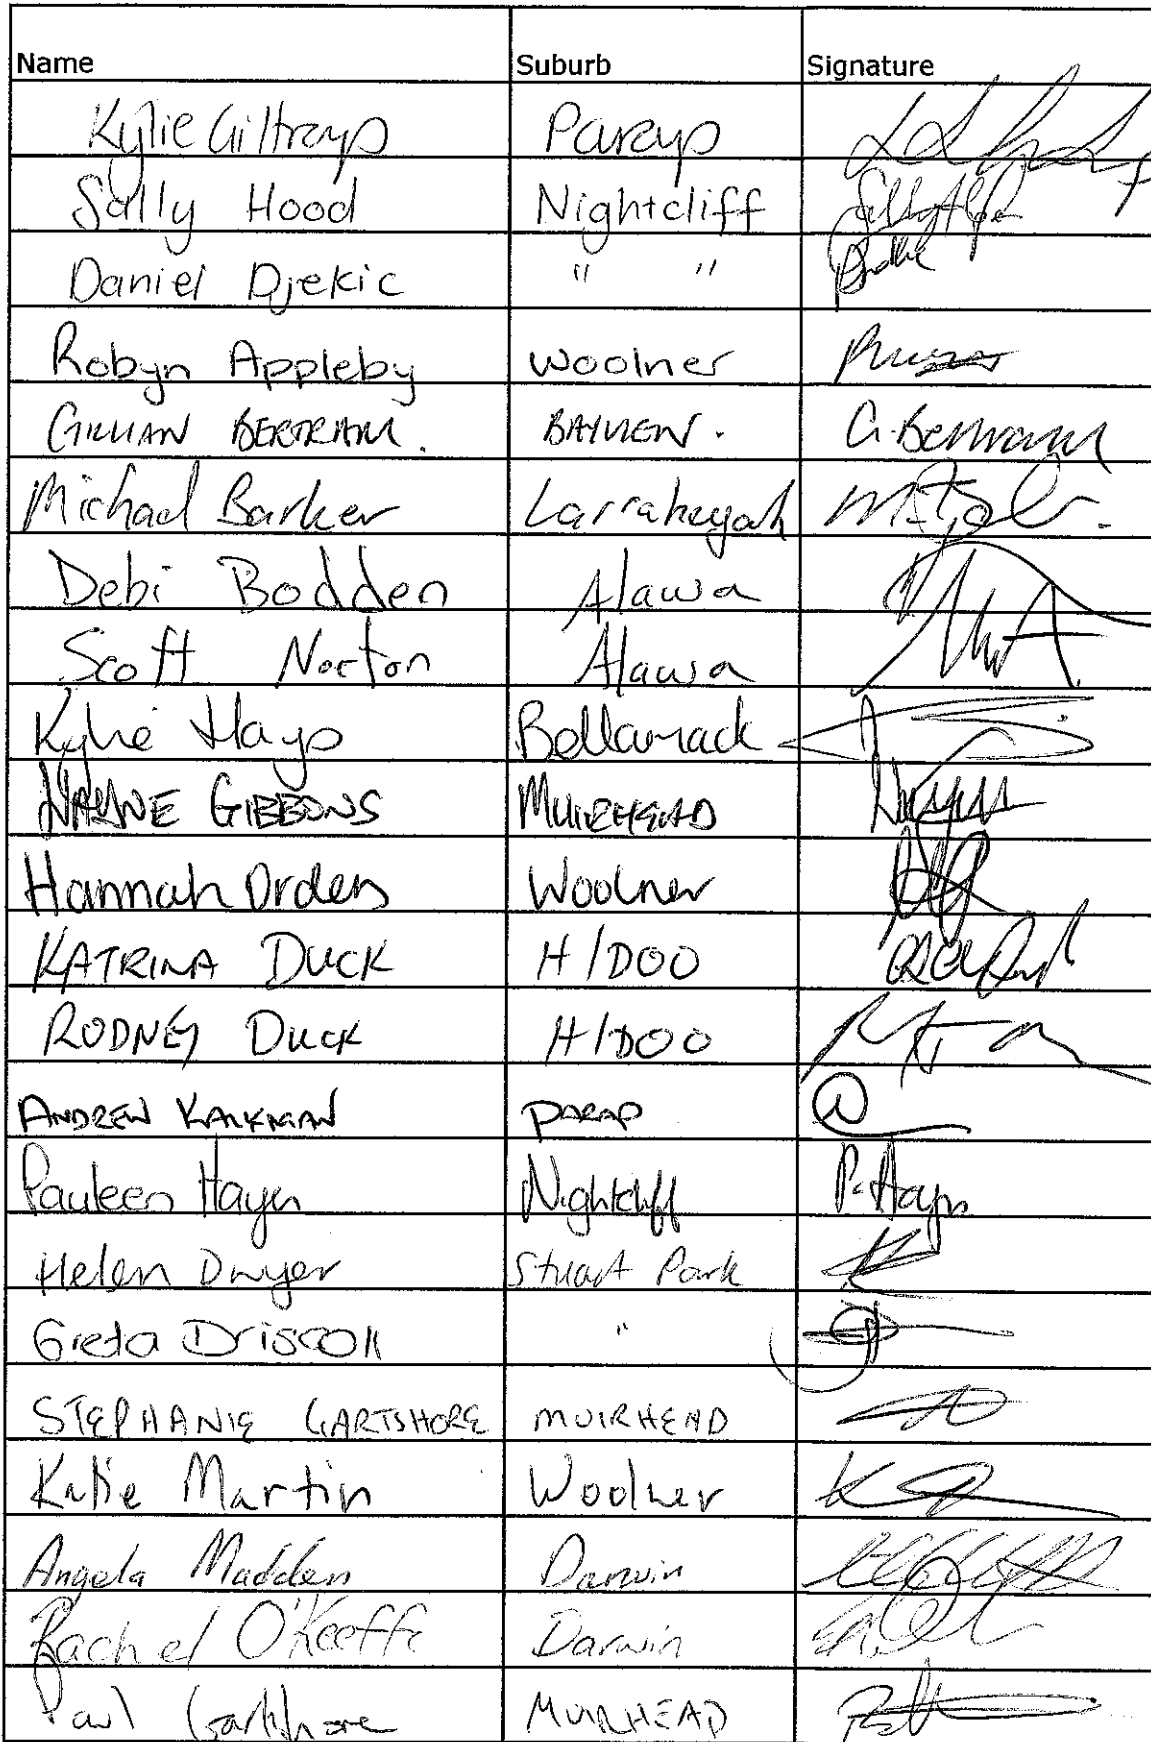 Name Suburb Signature
Kylie Giltrap Parap
Sally Hood Nightcliff
Daniel Djekic " "
Robyn Appleby Woolner
GILLIAN BERTRAM. BAYVIEW. G. Bertram
Michael Barker Larrakeyah
Debi Bodden Alawa
Scott Norton Alawa
Kylie Hays Bellamack
GIBBONS MUIRHEAD
Hannah Orders Woolner
KATRINA DUCK H/DOO
RODNEY DUCK H/DOO
ANDREW KALKMAN PARAP
Pauleen Hayes Nightcliff P. Hayes
Helen Dwyer Stuart Park
Greta Driscoll "
STEPHANIE GARTSHORE MUIRHEAD
Katie Martin Woolner
Angela Madden Darwin
Rachel O'Keeffe Darwin
Paul Gartshore MUIRHEAD